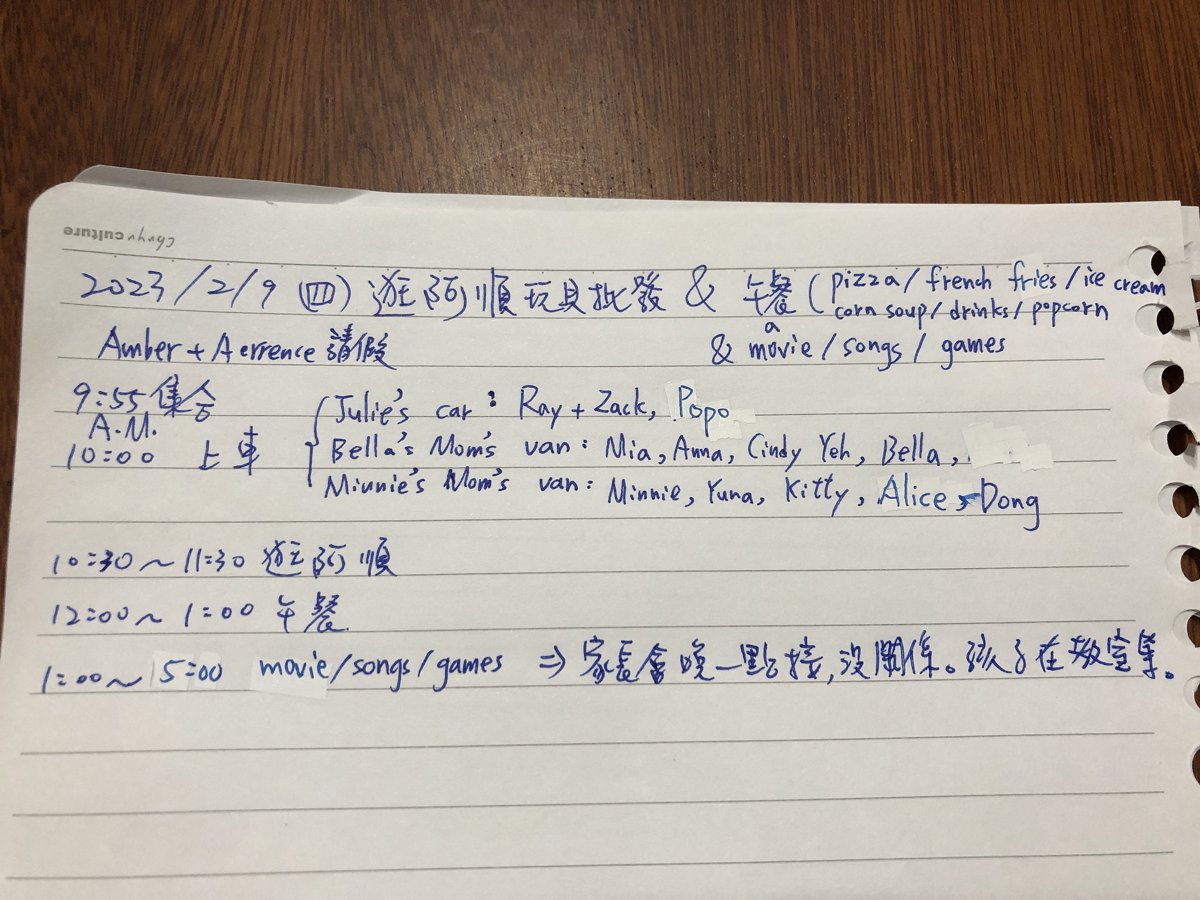 Chuyu culture
2023/2/9 (四) 逛阿順玩具批發 & 午餐 (pizza/french fries/ice cream
corn soup/drinks/popcorn
Amber + Aerrence 請假
& a movie/songs/games
9:55 集合
A.M.
10:00 上車
Julie's car: Ray + Zack, Popo
Bella's Mom's van: Mia, Anna, Cindy Yeh, Bella,
Minnie's Mom's van: Minnie, Yuna, Kitty, Alice, Dong
10:30~11:30 逛阿順
12:00~1:00 午餐
1:00~5:00 movie/songs/games ⇒ 家長會晚一點接,沒關係。孩子在教室等。